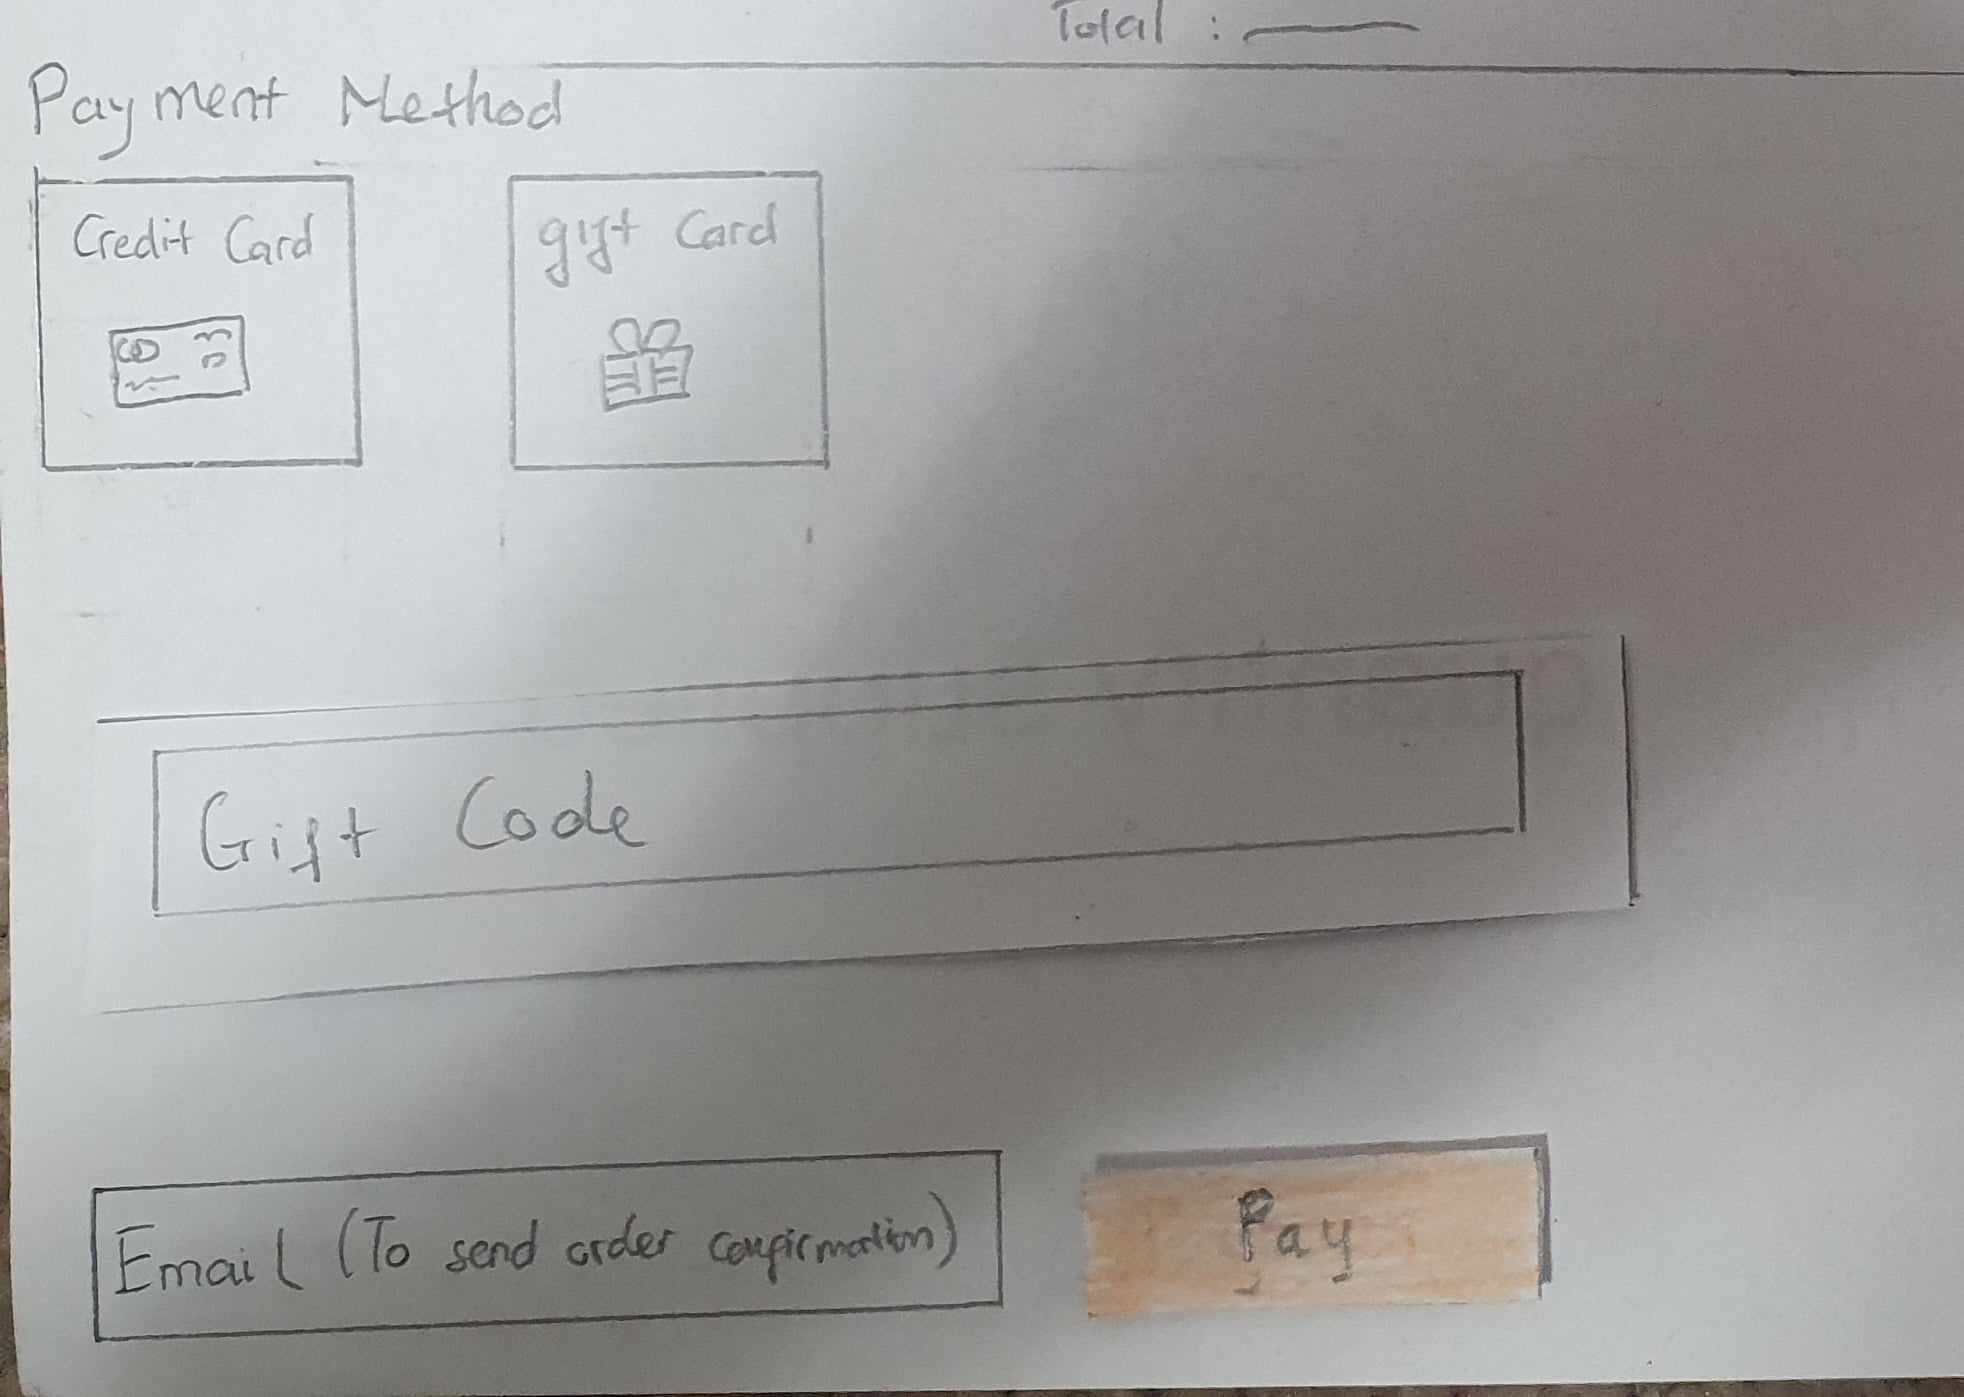 Total :
Payment Method
Credit Card
gift Card
Gift Code
Email (To send order confirmation)
Pay